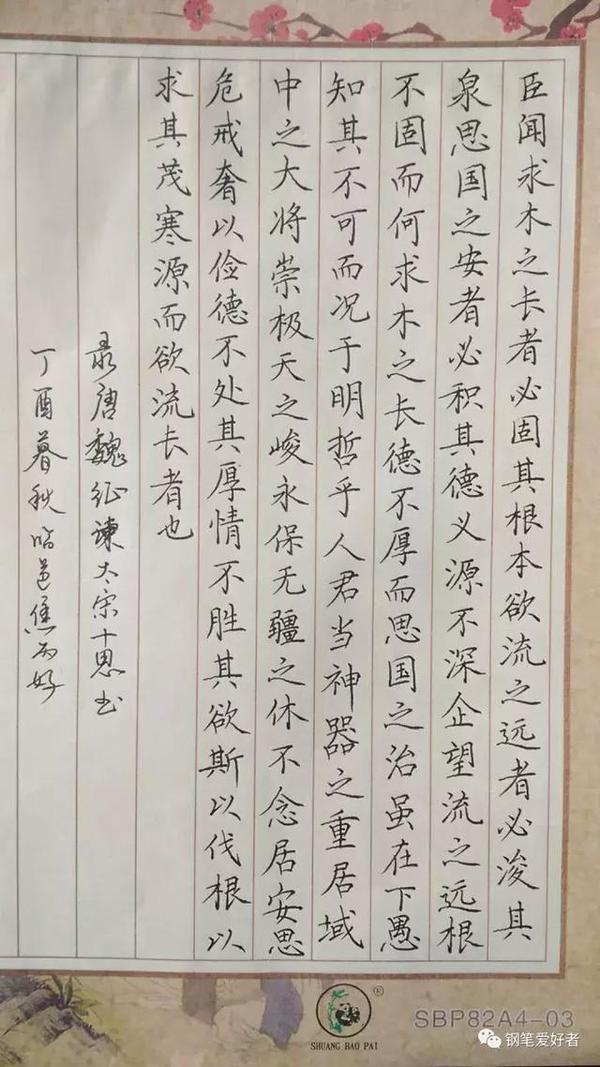 臣闻求木之长者必固其根本欲流之远者必浚其
泉思国之安者必积其德义源不深企望流之远根
不固而何求木之长德不厚而思国之治虽在下愚
知其不可而况于明哲乎人君当神器之重居域
中之大将崇极天之峻永保无疆之休不念居安思
危戒奢以俭德不处其厚情不胜其欲斯以伐根以
求其茂寒源而欲流长者也
录唐魏征谏太宗十思书
丁酉暮秋临邑焦
SHUANG BAO PAI
®
SBP82A4-03
钢笔爱好者